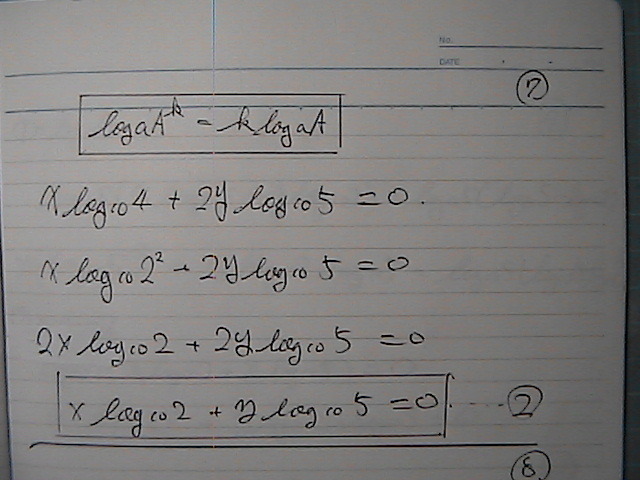 No.
DATE
⑦
logₐAᵏ = k logₐA
x log₁₀4 + 2y log₁₀5 = 0.
x log₁₀2² + 2y log₁₀5 = 0
2x log₁₀2 + 2y log₁₀5 = 0
x log₁₀2 + y log₁₀5 = 0. ---- ②
⑧